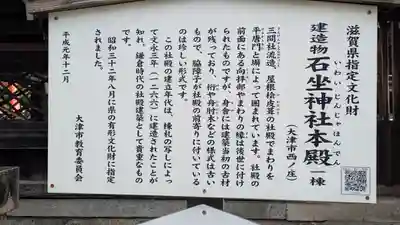 滋賀県指定文化財
建造物 石坐神社本殿 一棟
いわいじんじゃほんでん
(大津市西ノ庄)
三間社流造、屋根桧皮葺の社殿でまわりを
平唐門と塀によって囲まれています。社殿の
前面にある向拝部やまわりの縁は後世に付け
られたものですが、身舎には建築当初の古材
が残っており、桁や舟肘木などの様式は古い
もので、脇障子が社殿の前寄りに付いている
のは珍しい形式です。
この社殿の建立年代は、棟札の写しによっ
て文永三年(一二六六)に建造されたことが
知れ、鎌倉時代の社殿建築として貴重なもの
です。
昭和三十二年八月に県の有形文化財に指定
されました。
平成元年十二月
大津市教育委員会